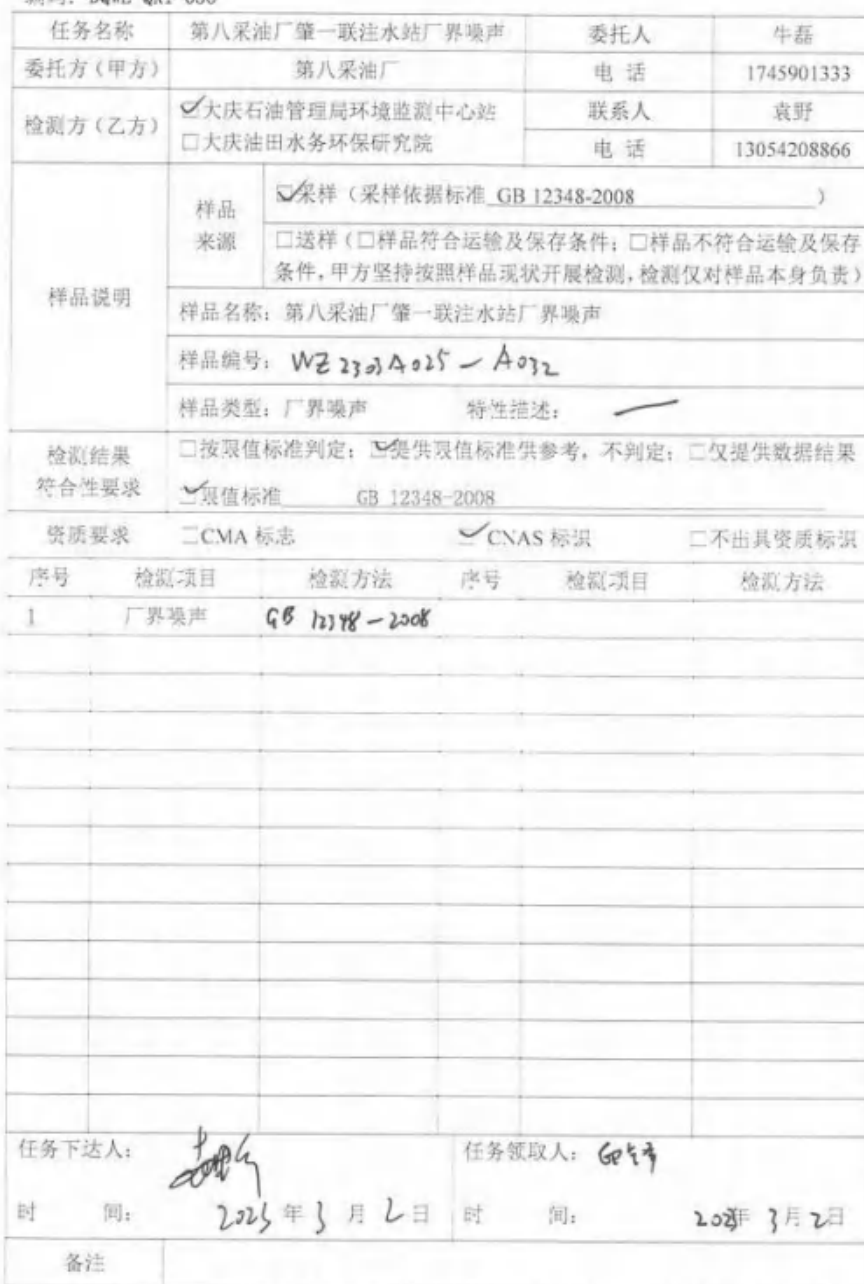 任务名称 第八采油厂肇一联注水站厂界噪声 委托人 牛磊
委托方（甲方） 第八采油厂 电 话 1745901333
检测方（乙方） ☑大庆石油管理局环境监测中心站 联系人 袁野
□大庆油田水务环保研究院 电 话 13054208866
样品说明 样品来源 ☑采样（采样依据标准 GB 12348-2008 ）
□送样（□样品符合运输及保存条件；□样品不符合运输及保存
条件，甲方坚持按照样品现状开展检测，检测仅对样品本身负责）
样品名称：第八采油厂肇一联注水站厂界噪声
样品编号：WZ2303A025－A032
样品类型：厂界噪声 特性描述：—
检测结果 □按限值标准判定；☑提供限值标准供参考，不判定；□仅提供数据结果
符合性要求 ☑限值标准 GB 12348-2008
资质要求 □CMA 标志 ☑CNAS 标识 □不出具资质标识
序号 检测项目 检测方法 序号 检测项目 检测方法
1 厂界噪声 GB 12348-2008
任务下达人： 任务领取人：
时 间： 2023年3月2日 时 间： 2023年3月2日
备注